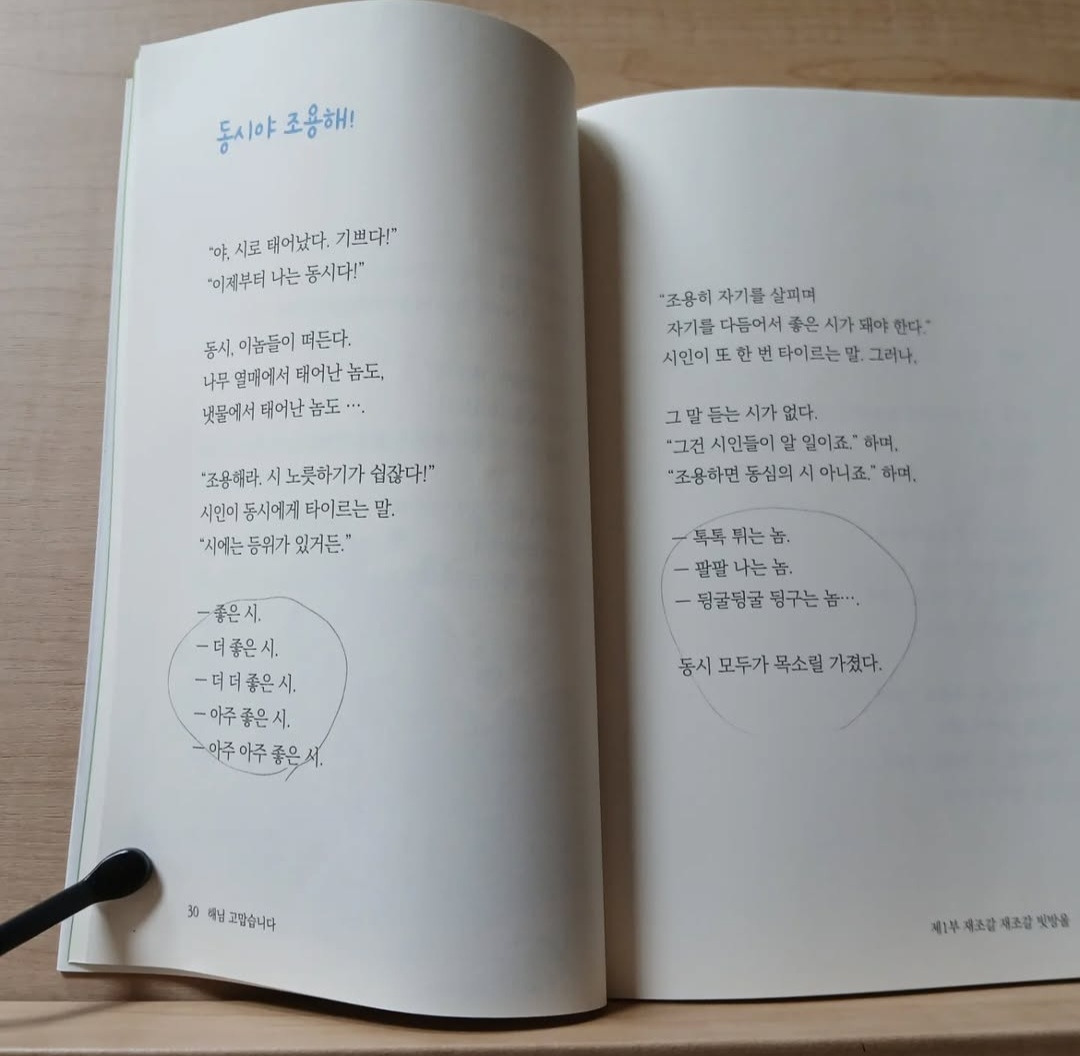 동시야 조용해!
“야, 시로 태어났다. 기쁘다!”
“이제부터 나는 동시다!”
동시, 이놈들이 떠든다.
나무 열매에서 태어난 놈도,
냇물에서 태어난 놈도 ….
“조용해라. 시 노릇하기가 쉽잖다!”
시인이 동시에게 타이르는 말.
“시에는 등위가 있거든.”
― 좋은 시.
― 더 좋은 시.
― 더 더 좋은 시.
― 아주 좋은 시.
― 아주 아주 좋은 시.
30 해님 고맙습니다
“조용히 자기를 살피며
자기를 다듬어서 좋은 시가 돼야 한다.”
시인이 또 한 번 타이르는 말. 그러나,
그 말 듣는 시가 없다.
“그건 시인들이 알 일이죠.” 하며,
“조용하면 동심의 시 아니죠.” 하며,
― 톡톡 튀는 놈.
― 팔팔 나는 놈.
― 뒹굴뒹굴 뒹구는 놈….
동시 모두가 목소릴 가졌다.
제1부 재조갈 재조갈 빗방울